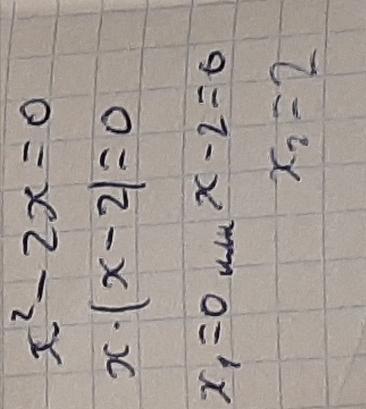 x² - 2x = 0
x · (x - 2) = 0
x₁ = 0 или x - 2 = 0
x₂ = 2